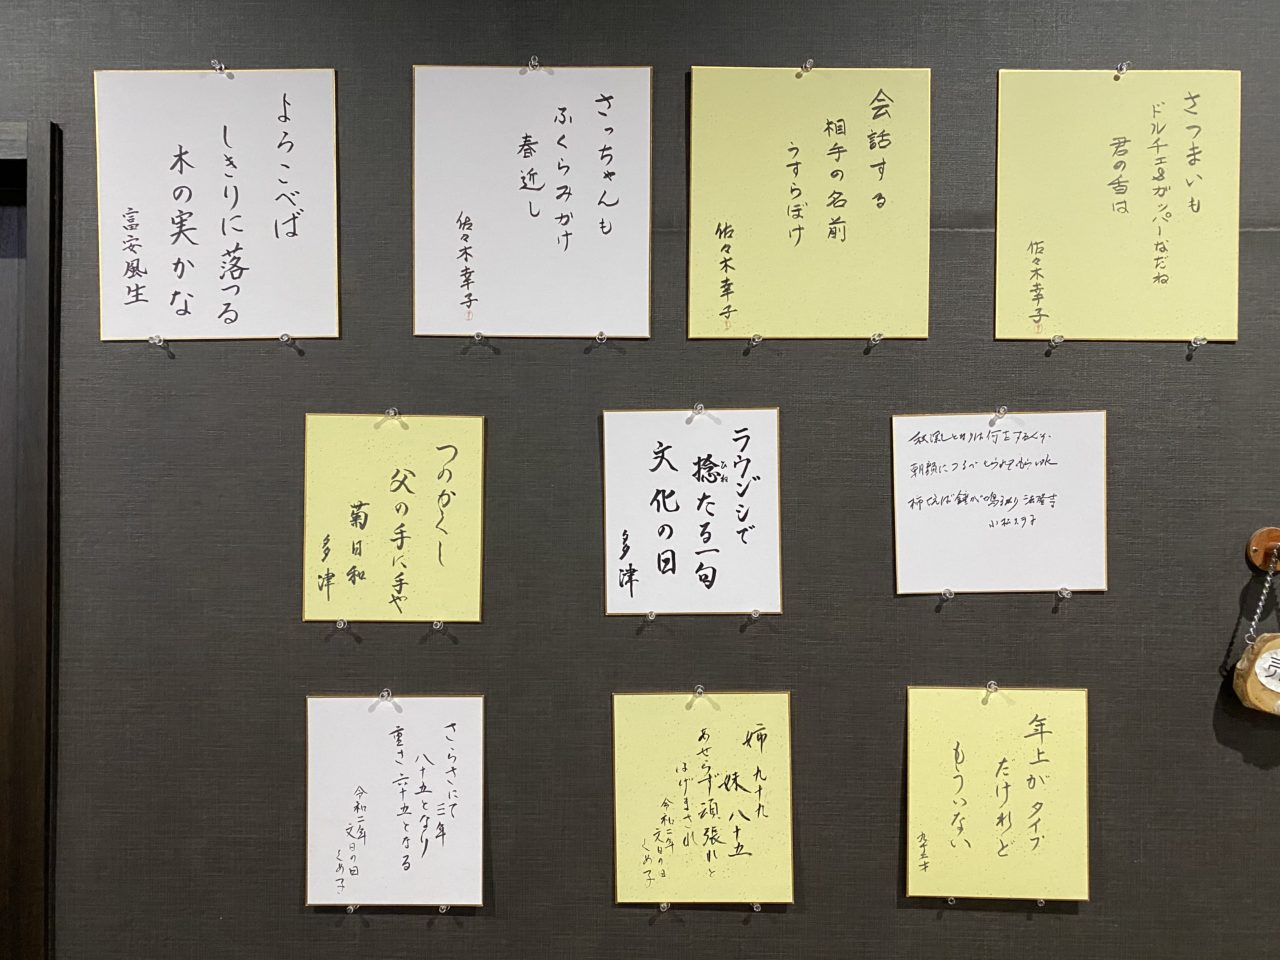 よろこべば
しきりに落つる
木の実かな
富安風生
さっちゃんも
ふくらみかけ
春近し
佐々木幸子
会話する
相手の名前
うすらぼけ
佐々木幸子
さつまいも
ドルチェ&ガッバーなだね
君の香は
佐々木幸子
つのかくし
父の手に手や
菊日和
多津
ラウンジで
捻たる一句
ひね
文化の日
多津
秋深しとなりは何をする人ぞ
朝顔につるべとられてもらい水
柿くえば鐘が鳴るなり法隆寺
さらさにて
三年
八十五となり
重さ六十五となる
令和二年
文日の日
くめ子
姉九十九
妹八十五
あせらず頑張れと
はげまされ
令和二年
文日の日
くめ子
年上がタイプ
だけれど
もういない
九十五才